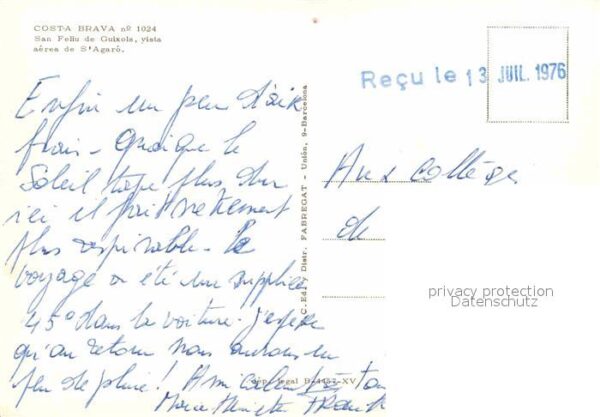 COSTA BRAVA nº 1024
San Feliu de Guixols, vista
aérea de S'Agaró.
Reçu le 13 JUIL. 1976
Enfin un peu d'air
frais - Quoique le
Soleil tape plus dur
ici il fait nettement
plus respirable - Le
voyage a été un supplice
45° dans la voiture. J'espère
qu'au retour nous aurons un
peu de pluie ! Amicalement
Aux collègues
de
C. Ed. y Distr. FABREGAT - Unión, 9-Barcelona
Dep. legal B-
privacy protection
Datenschutz